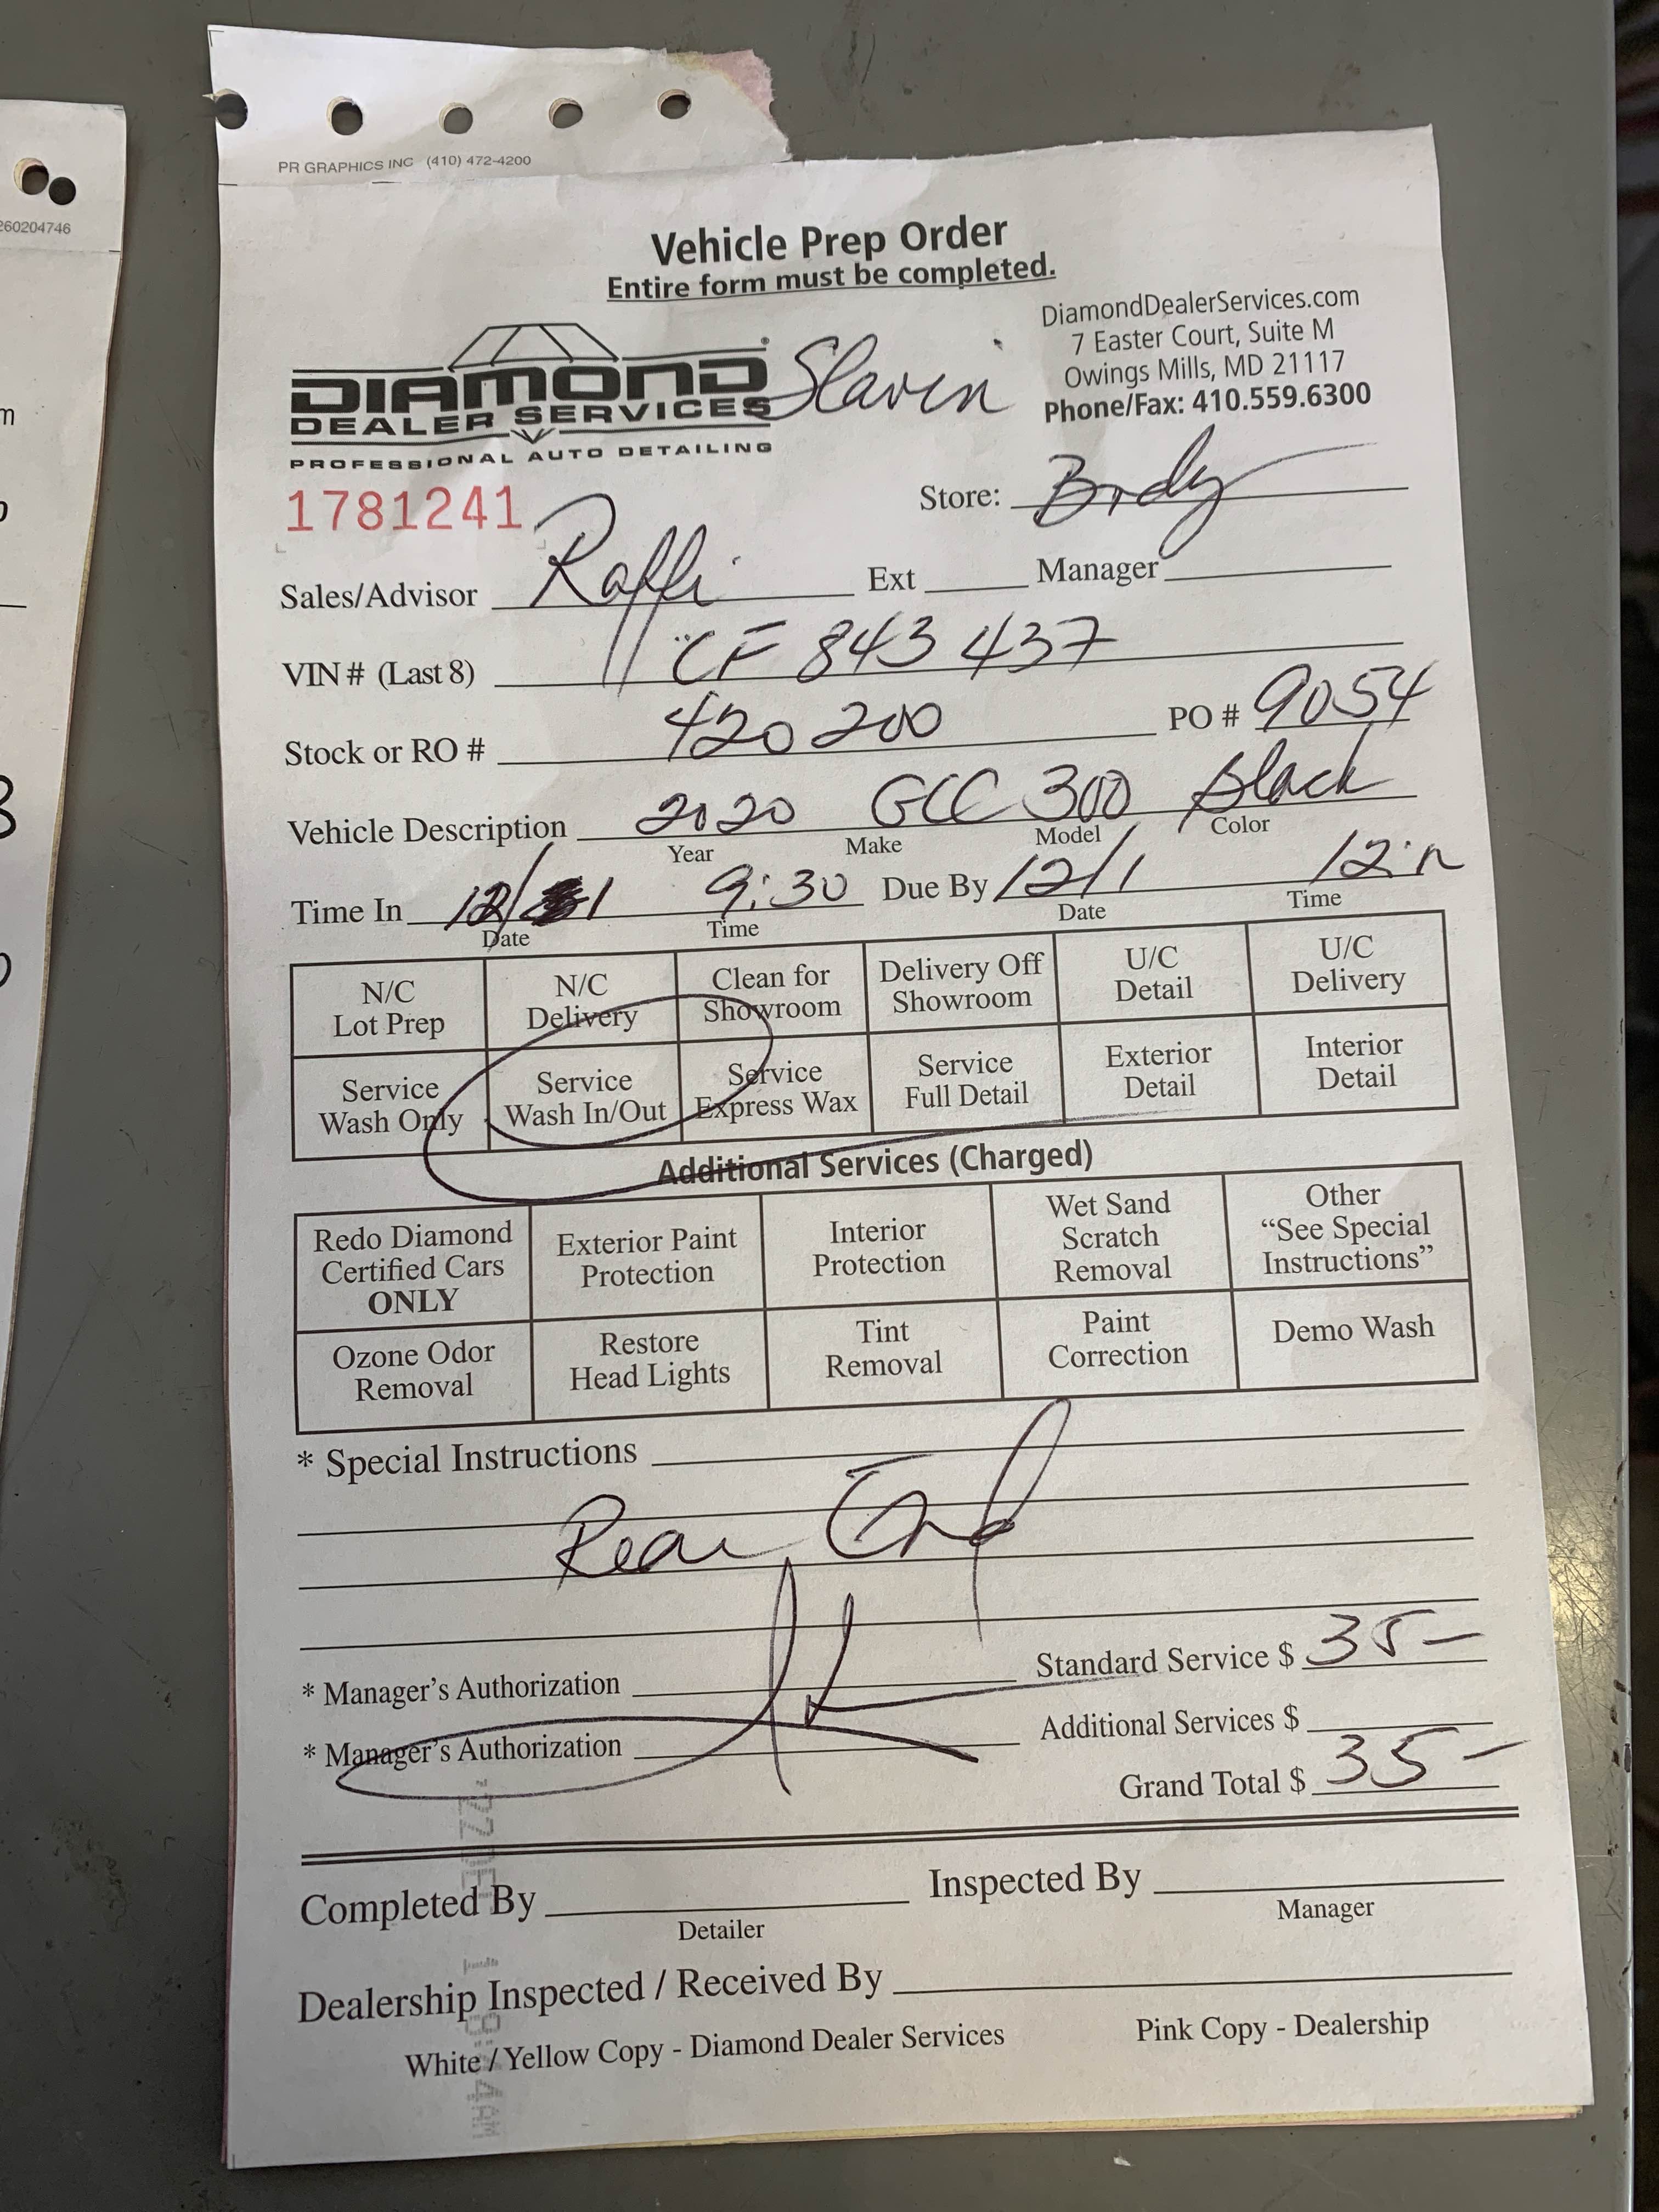 260204746
PR GRAPHICS INC (410) 472-4200
Vehicle Prep Order
Entire form must be completed.
DiamondDealerServices.com
7 Easter Court, Suite M
Owings Mills, MD 21117
Phone/Fax: 410.559.6300
DIAMOND
DEALER SERVICES
PROFESSIONAL AUTO DETAILING
Slavin
1781241
Store: Body
Sales/Advisor Raffi Ext Manager
VIN # (Last 8) CF 843437
Stock or RO # 420200 PO # 9054
Vehicle Description 2020 GCC 300 Black
Year Make Model Color
Time In 12/1 9:30 Due By 12/1 12:n
Date Time Date Time
N/C Lot Prep N/C Delivery Clean for Showroom Delivery Off Showroom U/C Detail U/C Delivery
Service Wash Only Service Wash In/Out Service Express Wax Service Full Detail Exterior Detail Interior Detail
Additional Services (Charged)
Redo Diamond Certified Cars ONLY Exterior Paint Protection Interior Protection Wet Sand Scratch Removal Other "See Special Instructions"
Ozone Odor Removal Restore Head Lights Tint Removal Paint Correction Demo Wash
* Special Instructions
Rear End
* Manager's Authorization Standard Service $ 35-
* Manager's Authorization Additional Services $
Grand Total $ 35-
Completed By Inspected By
Detailer Manager
Dealership Inspected / Received By
White / Yellow Copy - Diamond Dealer Services Pink Copy - Dealership